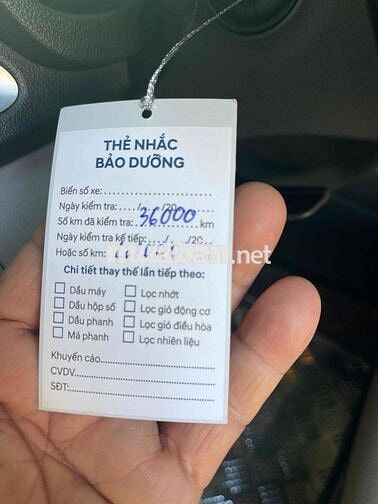 THẺ NHẮC
BẢO DƯỠNG
Biển số xe:
Ngày kiểm tra: ..../..../20
Số km đã kiểm tra: 36000 km
Ngày kiểm tra kế tiếp: ..../..../20
Hoặc số km:
Chi tiết thay thế lần tiếp theo:
Dầu máy
Dầu hộp số
Dầu phanh
Má phanh
Lọc nhớt
Lọc gió động cơ
Lọc gió điều hòa
Lọc nhiên liệu
Khuyến cáo
CVDV
SĐT: